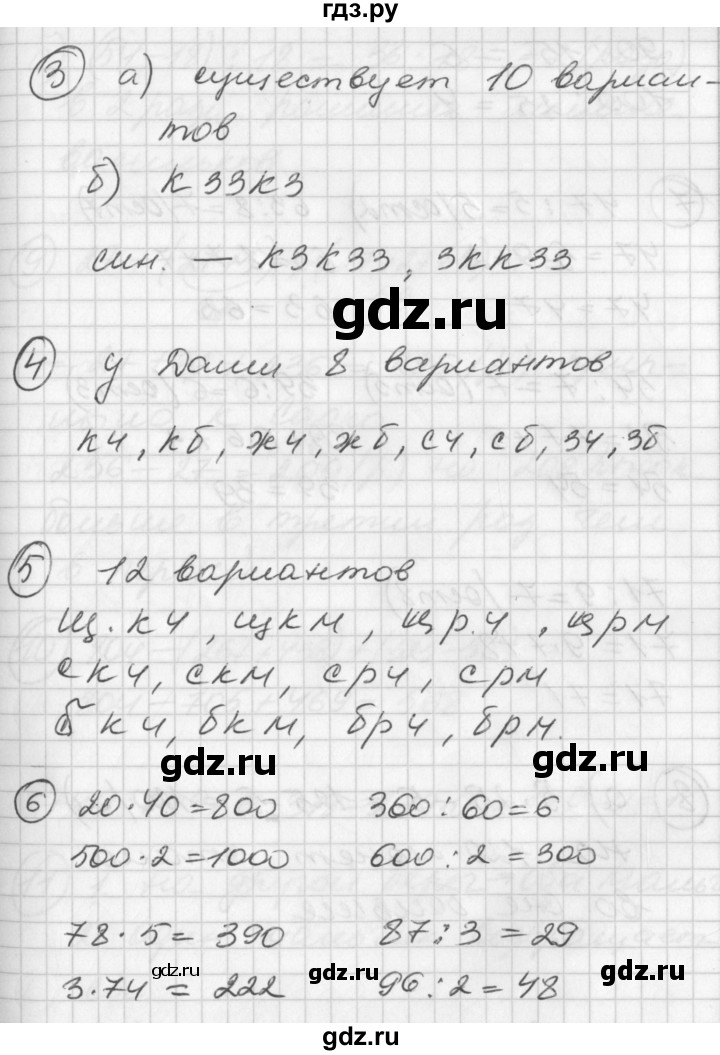 гдз.ру
3 а) существует 10 вариан-
тов
б) КЗЗКЗ
син. — КЗКЗЗ, ЗККЗЗ
gdz.ru
4 у Даши 8 вариантов
кч, кб, жч, жб, сч, сб, зч, зб
5 12 вариантов
щ.кч, щкм, щр.ч, щрм
скч, скм, срч, срм
бкч, бкм, брч, брм.
gdz.ru gdz.ru
6 20·40=800 360:60=6
500·2=1000 600:2=300
78·5=390 87:3=29
gdz.ru gdz.ru gdz.ru
3·74=222 96:2=48
gdz.ru